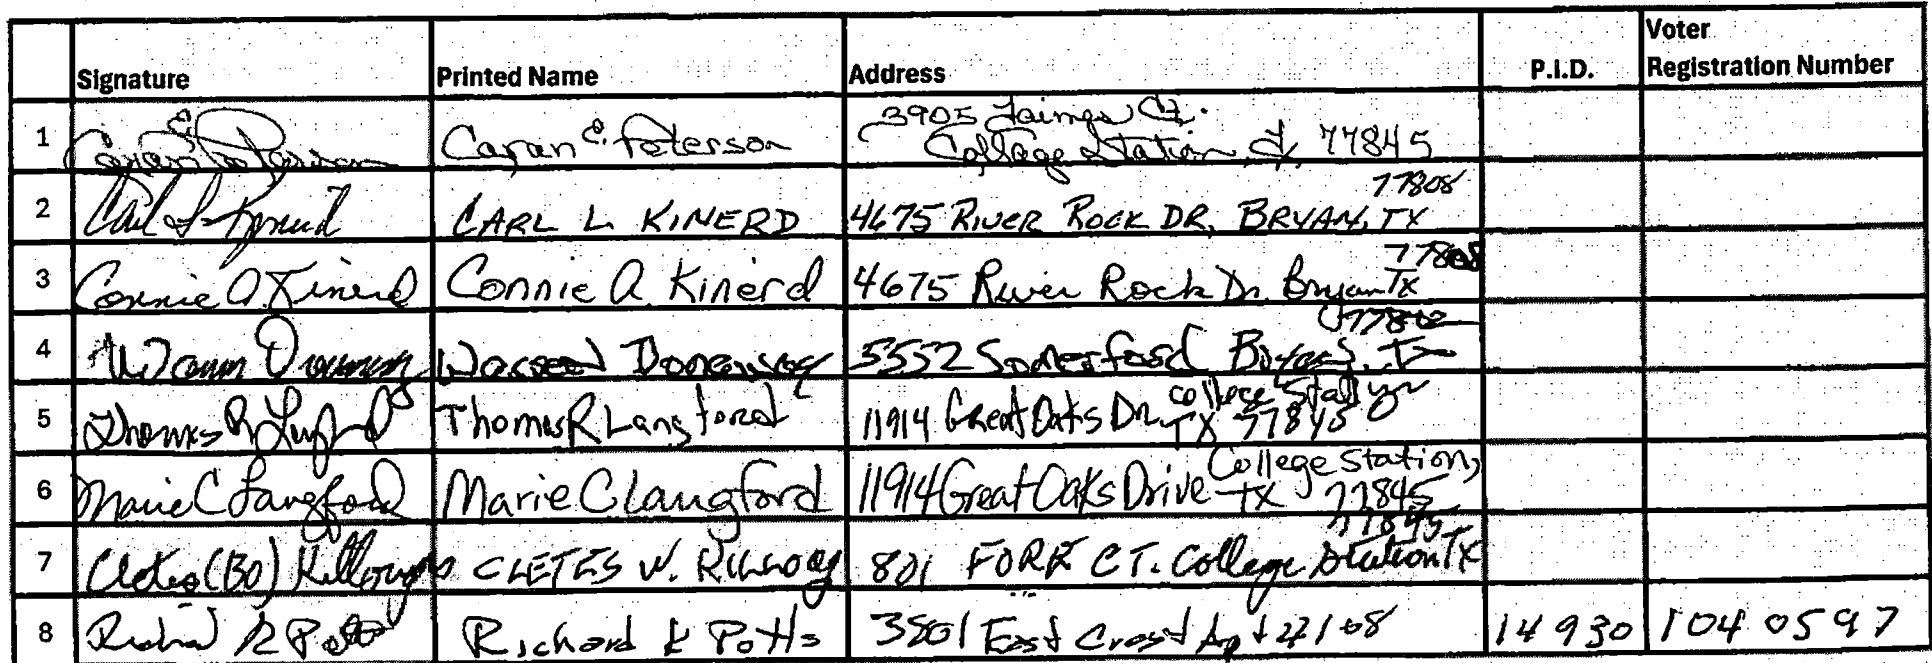 Signature Printed Name Address P.I.D. Voter Registration Number
1 Caran E. Peterson 3905 Ct.
College Station, 77845
2 Carl L. Kinerd CARL L. KINERD 4675 RIVER ROCK DR, BRYAN, TX 77808
3 Connie A. Kinerd Connie A. Kinerd 4675 River Rock Dr. Bryan TX 77808
4 5552
5 Thomas R Langford Thomas R Langford 11914 Great Oaks Dr. College Station
TX 77845
6 Marie C Langford Marie C Langford 11914 Great Oaks Drive College Station,
TX 77845
7 Cletes (Bo) Killough CLETES W. 801 FORK CT. College Station TX 77845
8 Richard K Potts 3801 East Crest Apt 14930 1040597